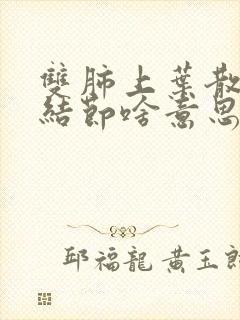 雙肺上葉散
結節啥意思
邱福龍 黃玉郎